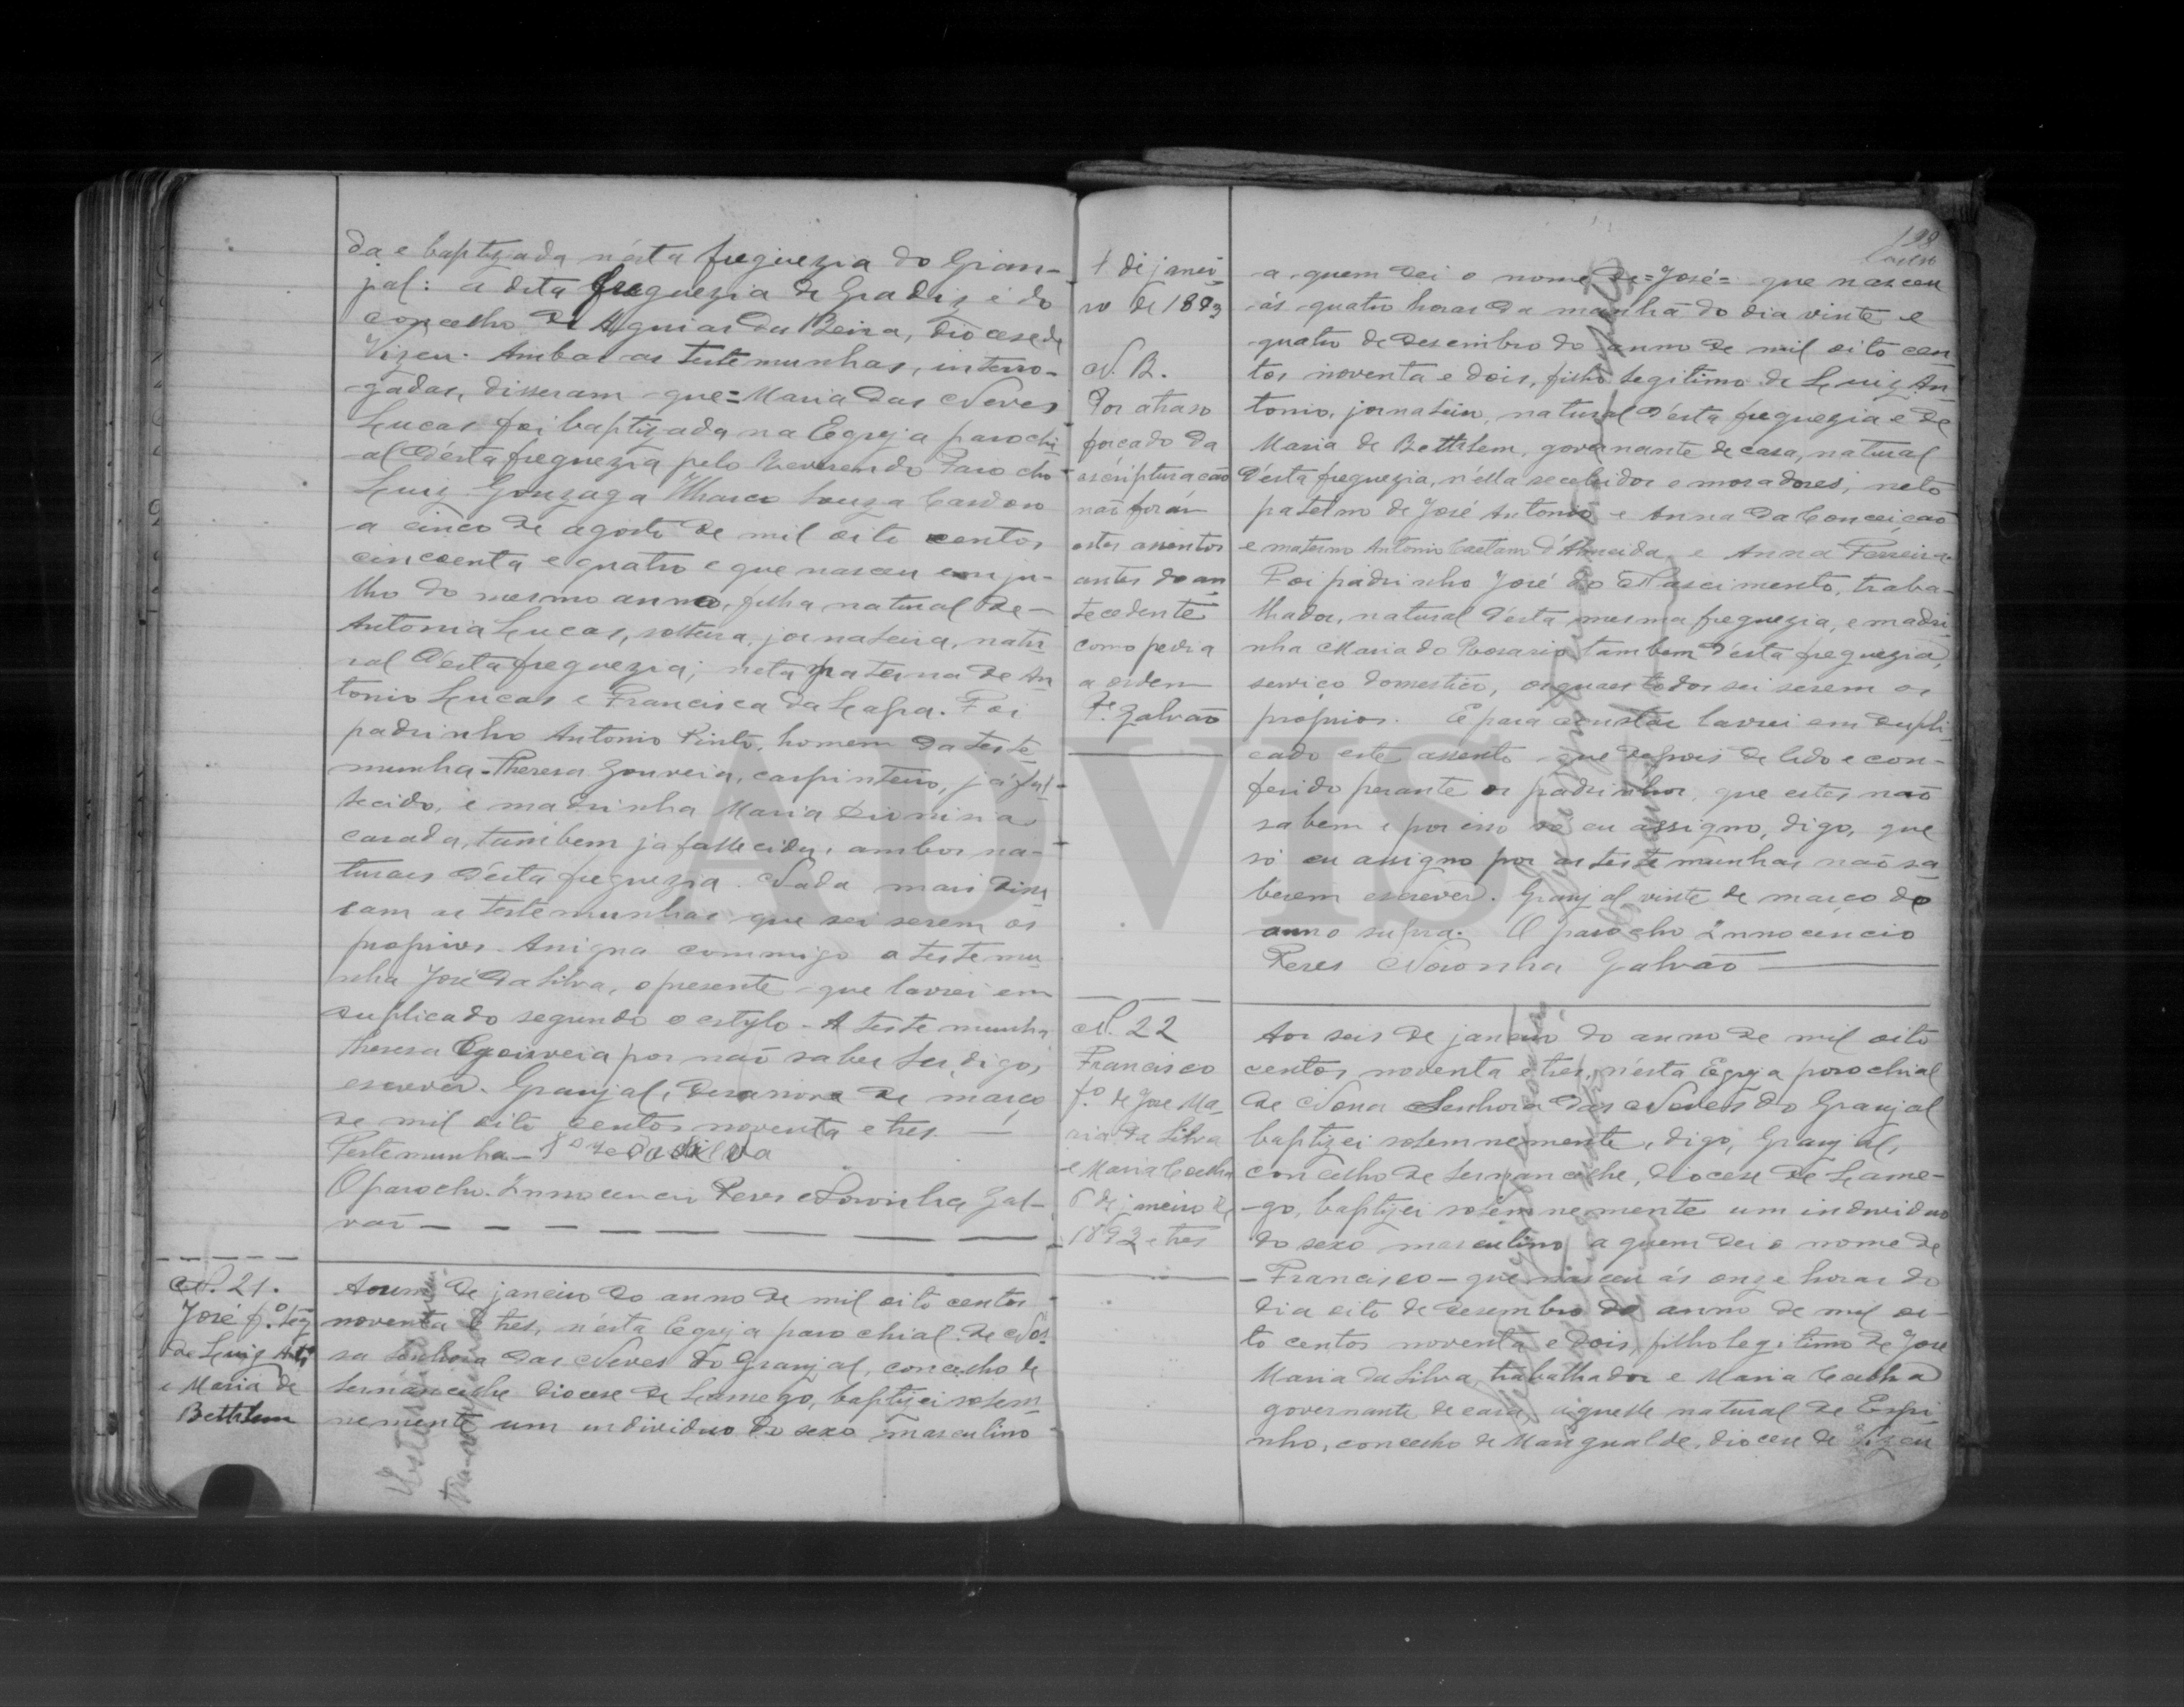 da e baptizada n'ésta freguezia do Gran-
jal: a dita freguezia de Gradiz é do
concelho de Aguiar da Beira, diocese de
Vizeu. Ambas as testemunhas, interro-
gadas, disseram que = Maria das Neves
Lucas foi baptizada na Egreja parochi-
al d'ésta freguezia pelo Reverendo Parocho
Luiz Gonzaga Souza Cardoso
a cinco de agosto de mil oito centos
cincoenta e quatro e que nasceu em ju-
lho do mesmo anno, filha natural de
Antonia Lucas, solteira, jornaleira, natu-
ral d'ésta freguezia; neta materna de An-
tonio Lucas e Francisca da Lapa. Foi
padrinho Antonio Pinto, homem da teste-
munha Theresa Gouveia, carpinteiro, já fal-
lecido, e madrinha Maria Dionisia
casada, tambem já fallecida, ambos na-
turaes d'ésta freguezia. Nada mais disse-
ram as testemunhas que sei serem os
proprios. Assigna commigo a testemu-
nha José da Silva, o presente que lavrei em
duplicado segundo o estylo. A testemunha
theresa Gouveia por não saber ler, digo,
escrever. Granjal, desanove de março
de mil oito centos noventa e tres —
Testemunha - Joze da Silva
O parocho. Innocencio Peres Noronha Gal-
vão — — — — — —
N. 21.
José f.º leg
de Luiz Antº
e Maria de
Bethlem
Aoum de janeiro do anno de mil oito centos
noventa e tres, n'ésta Egreja parochial de Nos-
sa Senhora das Neves do Granjal, concelho de
Sernancelhe diocese de Lamego, baptizei solem-
nemente um individuo do sexo masculino
1 de janei-
ro de 1893
N. B.
Por atraso
forçado da
escripturacão
não foram
estes assentos
antes do an-
tecedente
como pedia
a ordem
Pe. Galvão
198
a quem dei o nome de = José = que nasceu
ás quatro horas da manhã do dia vinte e
quatro de desembro do anno de mil oito cen-
tos noventa e dois, filho legitimo de Luiz An-
tonio, jornaleiro, natural d'ésta freguezia e de
Maria de Bethlem, governante de casa, natural
d'ésta freguezia, n'élla recebidos e moradores, neto
paterno de José Antonio e Anna da Conceição
e materno Antonio Caetano d'Almeida e Anna Ferreira
Foi padrinho José do Nascimento, traba-
lhador, natural d'ésta mesma freguezia, e madri-
nha Maria do Rosario tambem d'ésta freguezia,
serviço domestico, os quaes todos sei serem os
proprios. E para constar lavrei em dupli-
cado este assento que depois de lido e con-
ferido perante os padrinhos, que estes não
sabem e por isso só eu assigno, digo, que
só eu assigno por as testemunhas não sa-
berem escrever. Granjal vinte de março do
anno supra. O parocho Innocencio
Peres Noronha Galvão
N. 22
Francisco
f.º de José Ma-
ria da Silva
e Maria Coelha
6 de janeiro de
1893 e tres
Aos seis de janeiro do anno de mil oito
centos noventa e tres, n'ésta Egreja parochial
de Nossa Senhora das Neves do Granjal
baptizei solemnemente, digo, Granjal,
concelho de Sernancelhe, diocese de Lame-
go, baptizei solemnemente um individuo
do sexo masculino a quem dei o nome de
- Francisco - que nasceu ás onze horas do
dia oito de desembro do anno de mil oi-
to centos noventa e dois, filho legitimo de José
Maria da Silva, trabalhador e Maria Coelha
governante de casa, aquelle natural de Espi-
nho, concelho de Mangualde, diocese de Vizeu
ADVIS